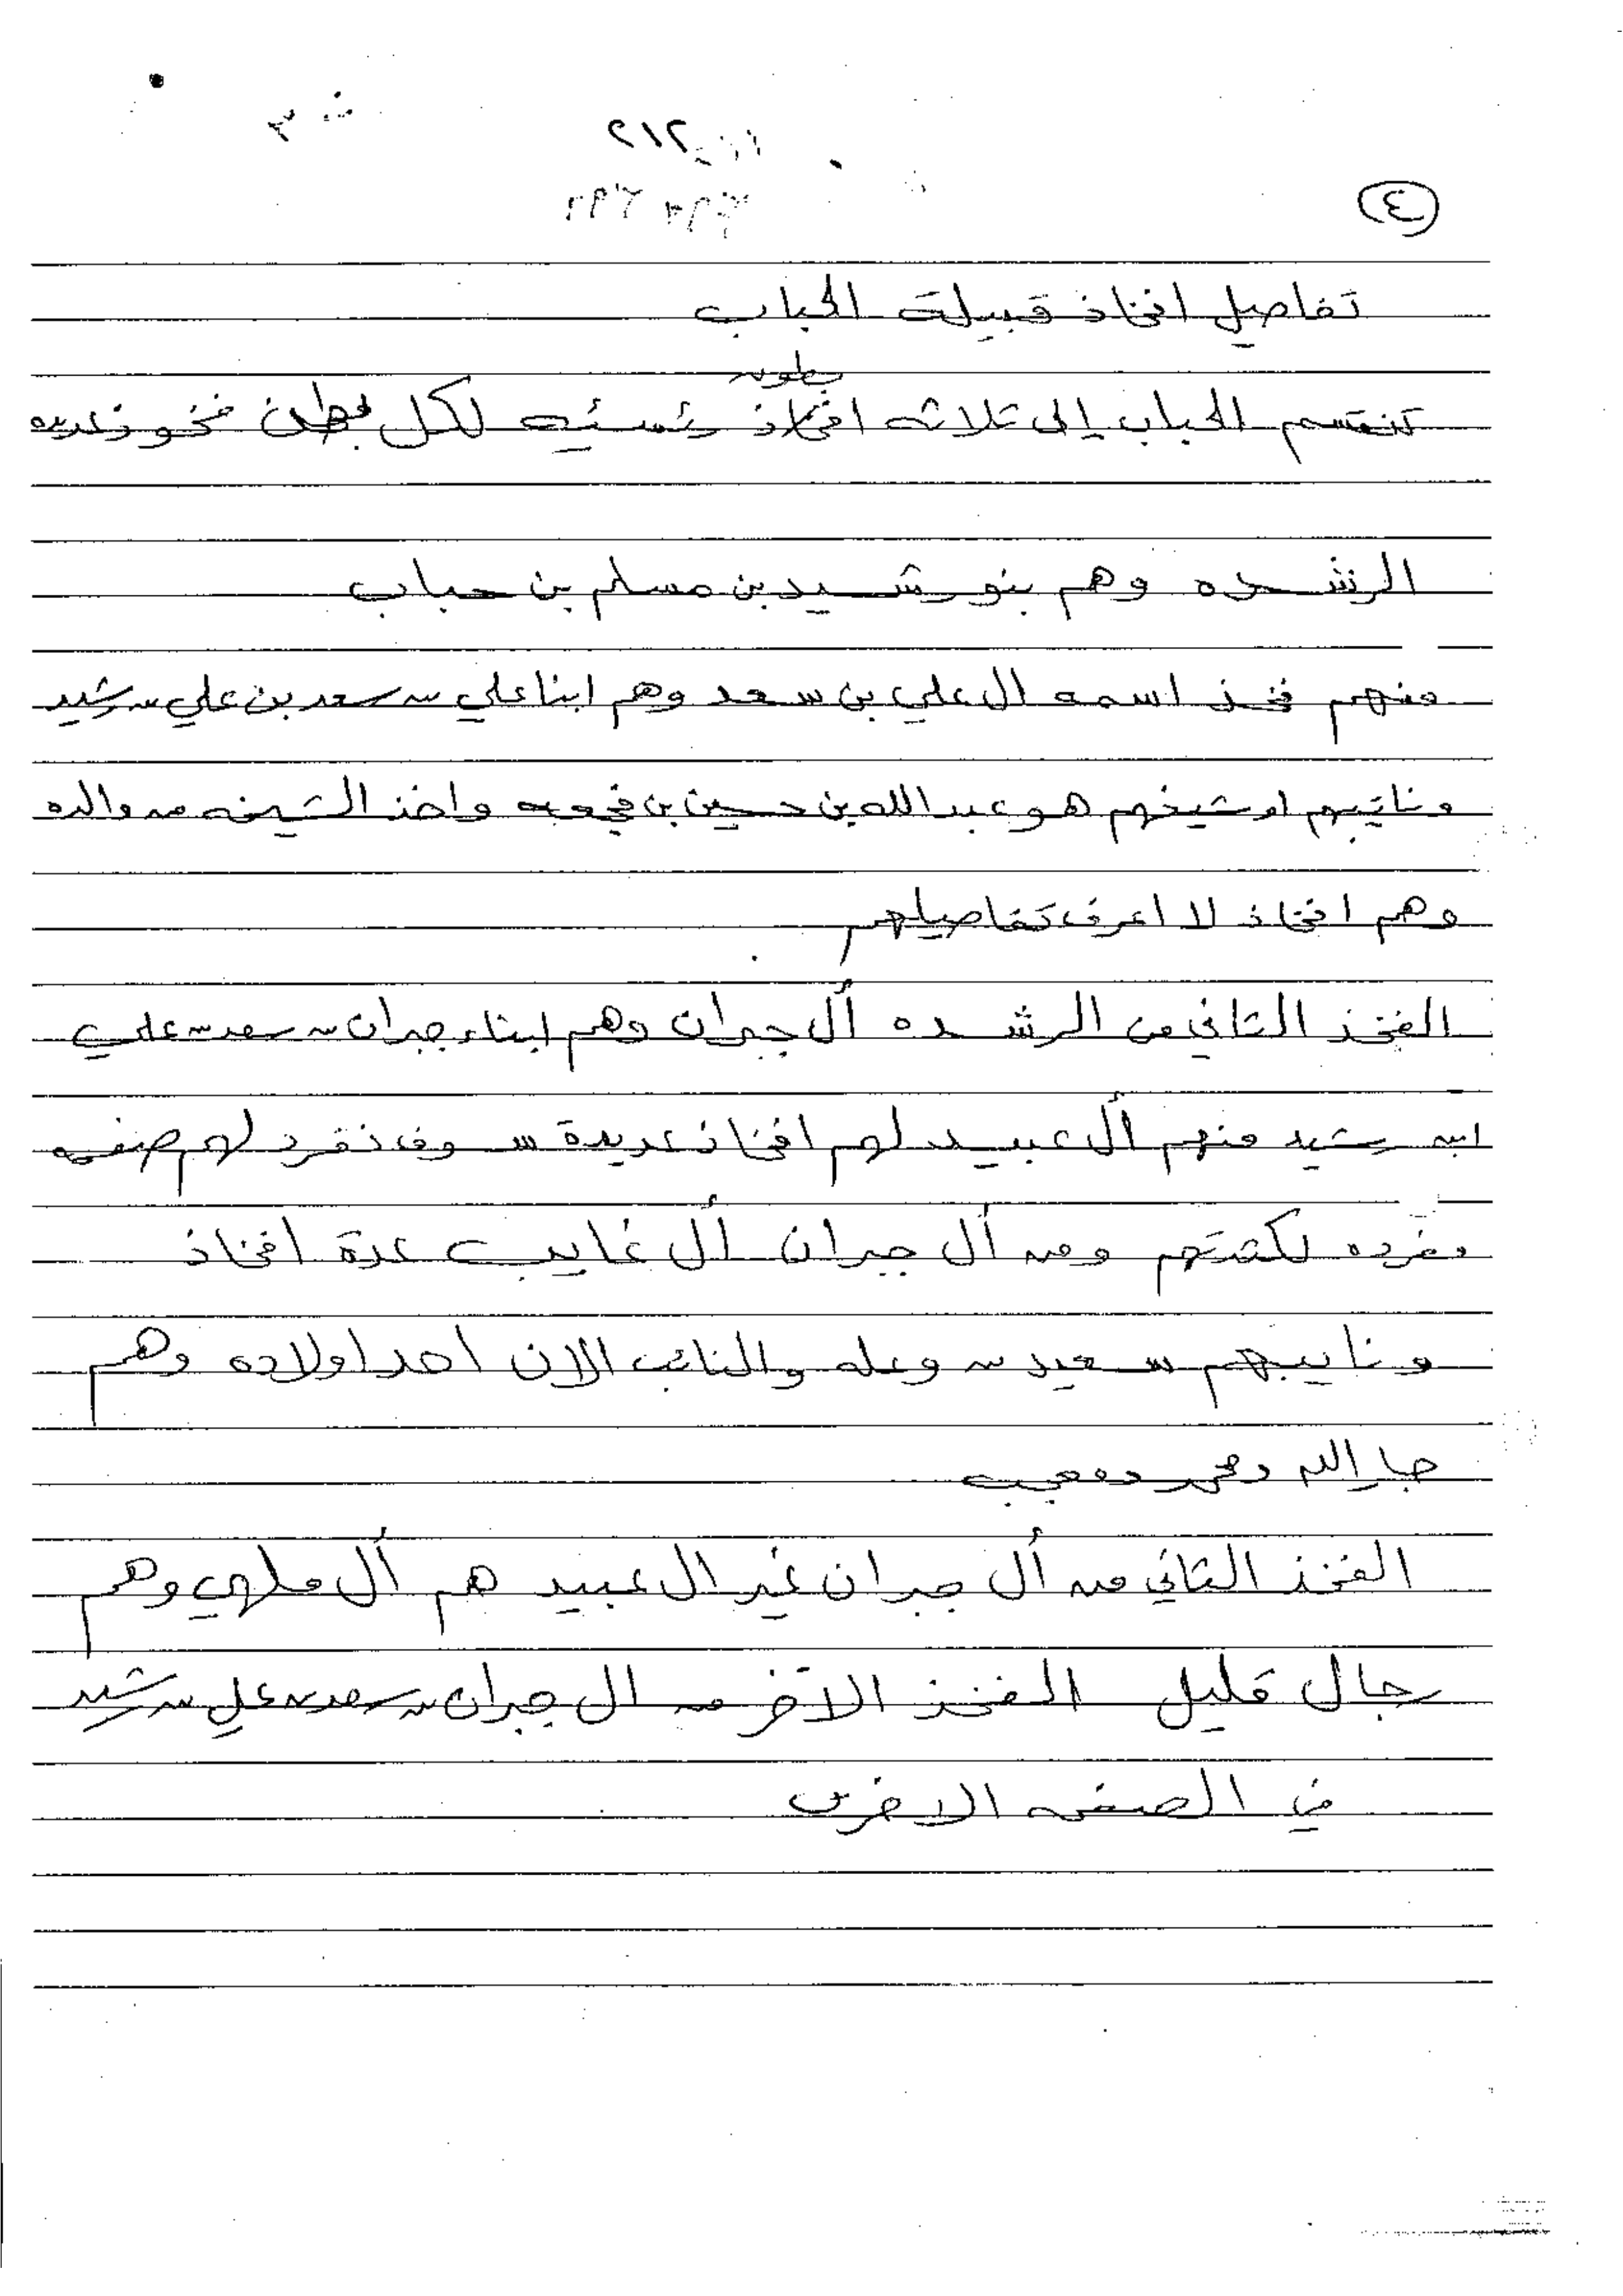 ٢١٢
٤
تفاصيل افخاذ قبيلة الحباب
بطون
تنقسم الحباب إلى ثلاثه افخاذ رئسيه لكل بطن فخوذ عديده
الرشده وهم بنو رشيد بن مسلم بن حباب
منهم فخذ اسمه ال علي بن سعد وهم ابنا علي بن سعد بن علي بن رشيد
ونائبهم او شيخهم هو عبدالله بن حسين بن واخذ الشيخه من والده
وهم افخاذ لا اعرف تفاصيلهم
الفخذ الثاني من الرشده أل جبران وهم ابناء جبران بن سعد بن علي
ابن رشيد منهم أل عبيد لهم افخاذ عديدة سوف نفرد لهم صفحه
مفرده لكثرتهم ومن أل جبران أل غايب عدة افخاذ
ونايبهم سعيد بن وعله والنائب الان احد اولاده وهم
جارالله ومحمد ومعجب
الفخذ الثاني من أل جبران غير ال عبيد هم أل ملهي وهم
رجال قليل الفخذ الاخر من ال جبران بن سعد بن علي بن رشيد
في الصفحه الاخرى